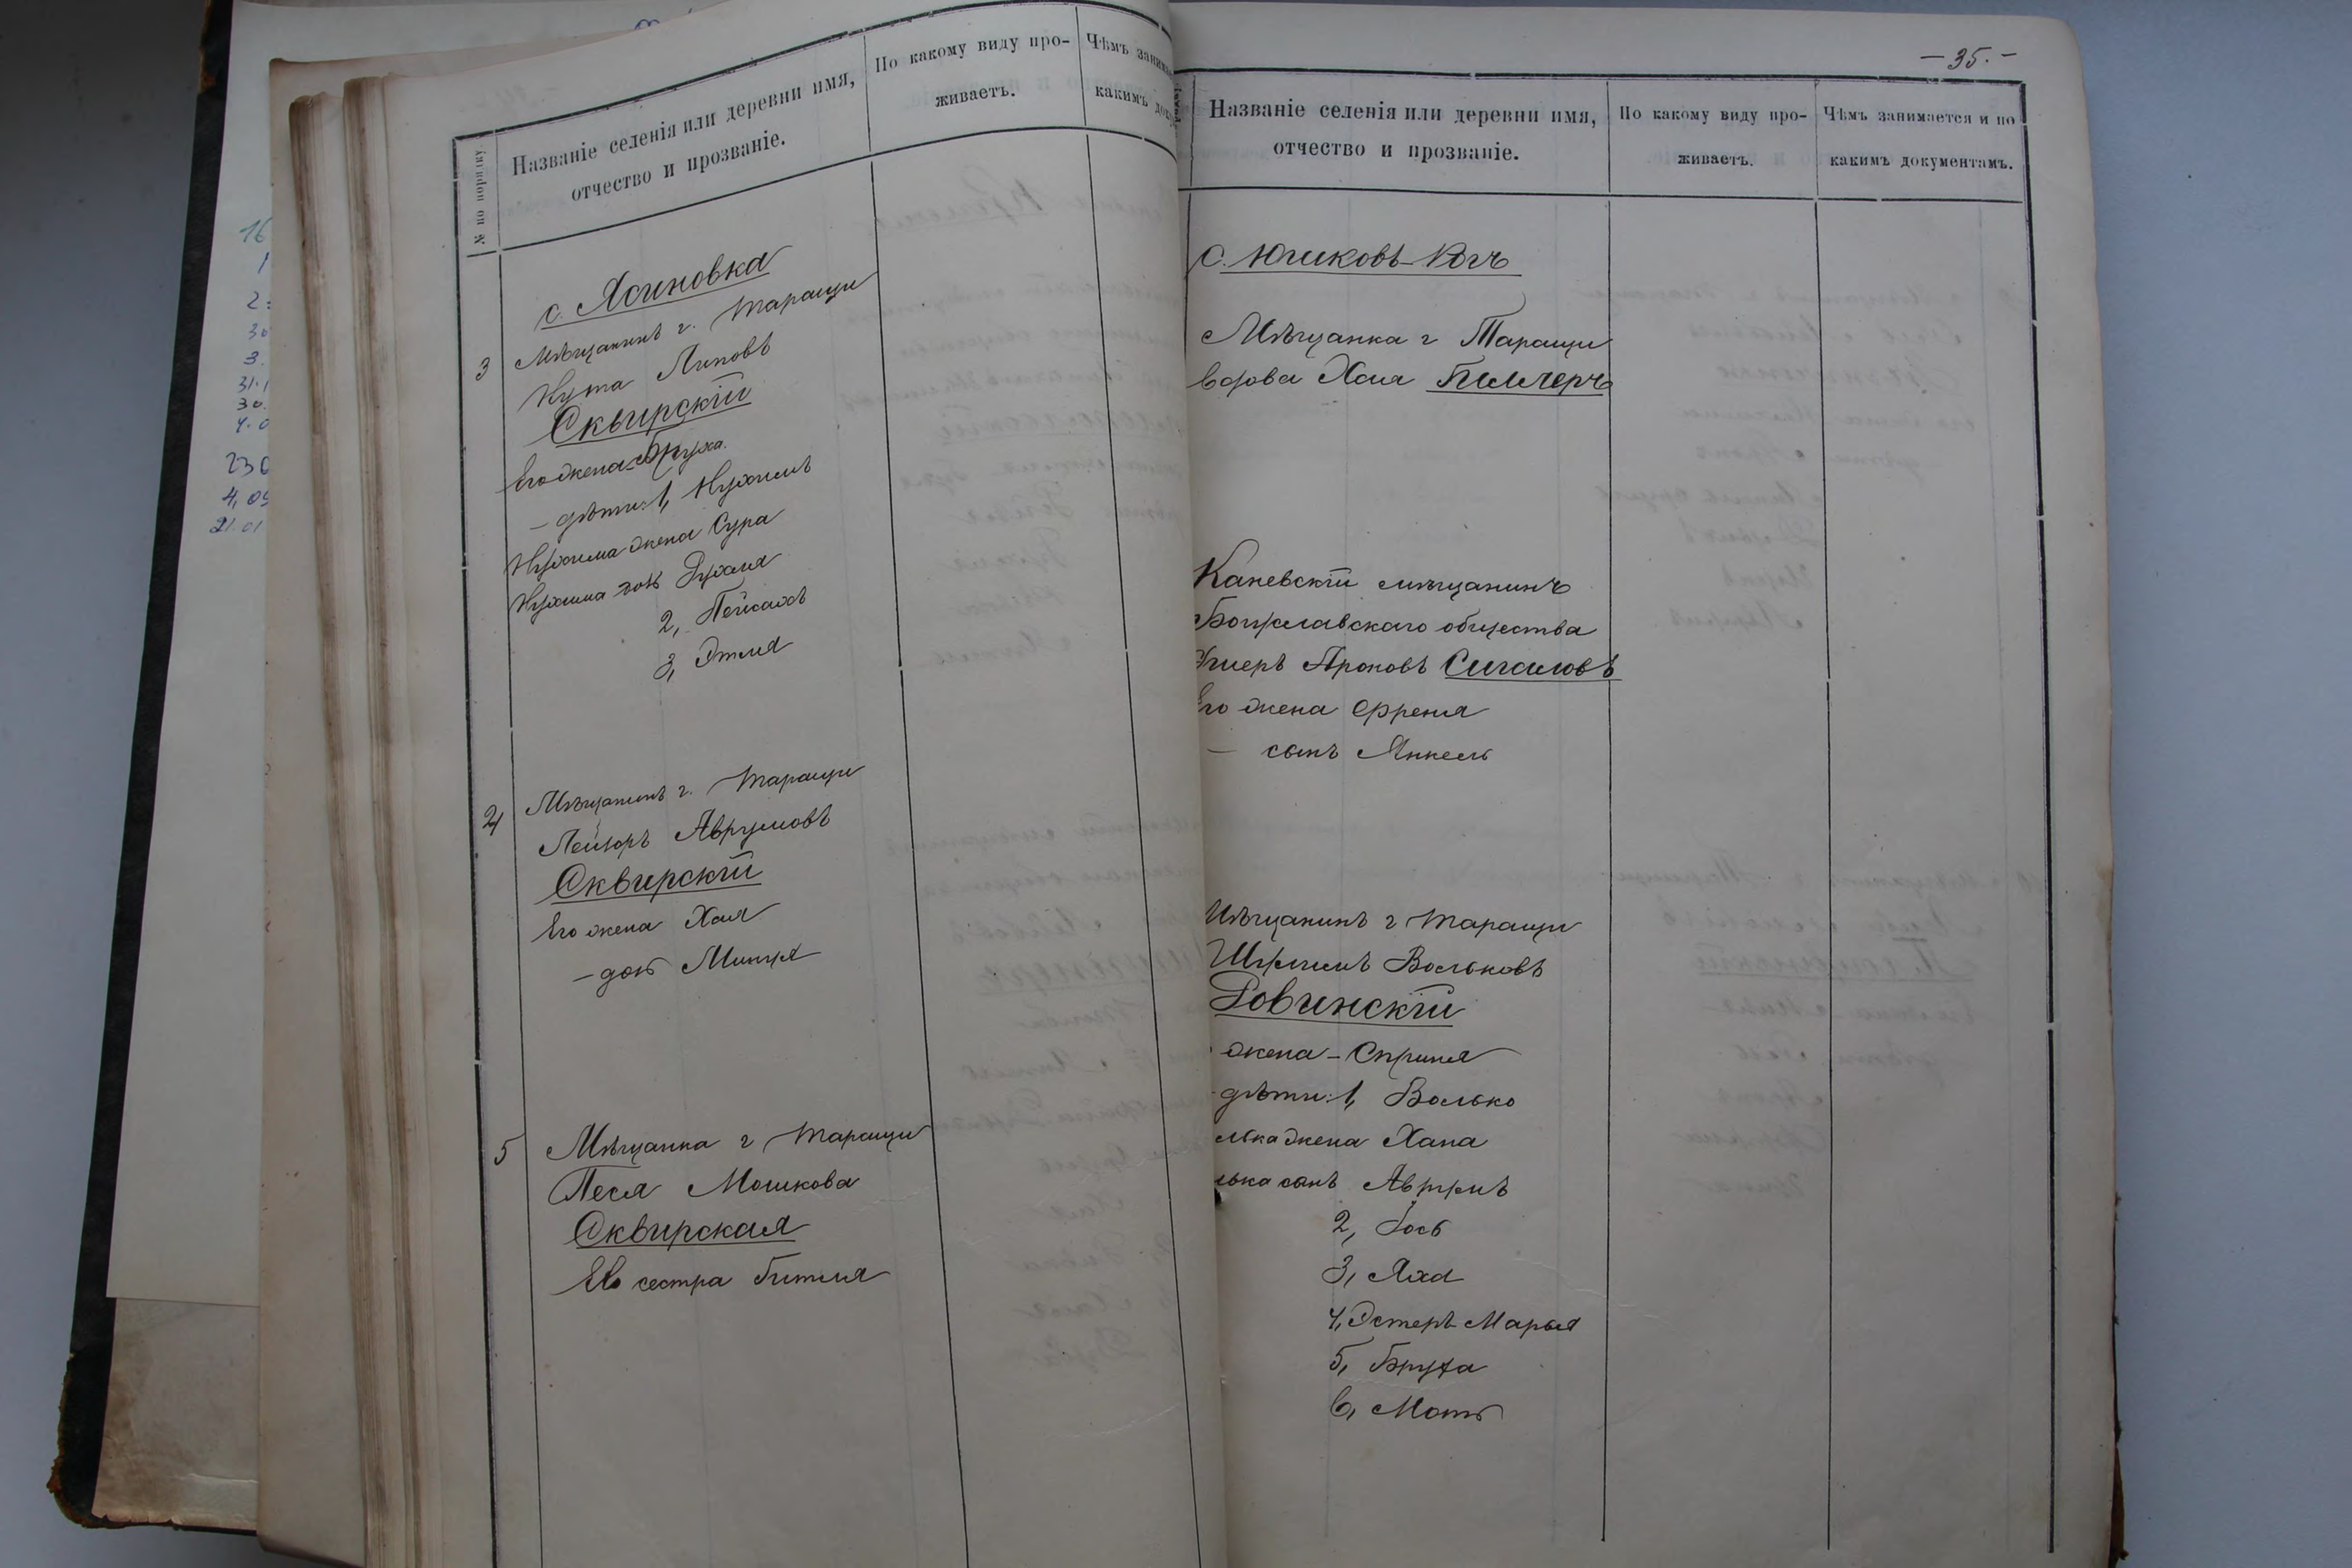 16
1
2
30
3.
31.1
30.
4.0
230
4,05
21.01
№ по порядку
Названіе селенія или деревни имя,
отчество и прозваніе.
По какому виду про-
живаетъ.
Чѣмъ
какимъ
с. Ясиновка
3 Мѣщанинъ г. Таращи
Нута Липовъ
Сквирскій
Его жена Бруха.
— дѣти: 1, Нухимъ
Нухима жена Сура
Нухима дочь Рухля
2, Пейсахъ
3, Этля
4 Мѣщанинъ г. Таращи
Лейзоръ Аврумовъ
Сквирскій
Его жена Хая
— дочь
5 Мѣщанка г Таращи
Песя Мошкова
Сквирская
Ея сестра Гитля
— 35. —
Названіе селенія или деревни имя,
отчество и прозваніе.
По какому виду про-
живаетъ.
Чѣмъ занимается и по
какимъ документамъ.
с. Юшковъ-Рогъ
Мѣщанка г Таращи
вдова Хая
Каневскій мѣщанинъ
Богуславскаго общества
Ароновъ Сигаловъ
Его жена
— сынъ Янкель
Мѣщанинъ г Таращи
Вольковъ
Ровинскій
жена — Сприня
дѣти: 1, Волько
лька жена Хана
лька сынъ
2, Гось
3,
4, Эстеръ-Марья
5, Бруха
6, Моть